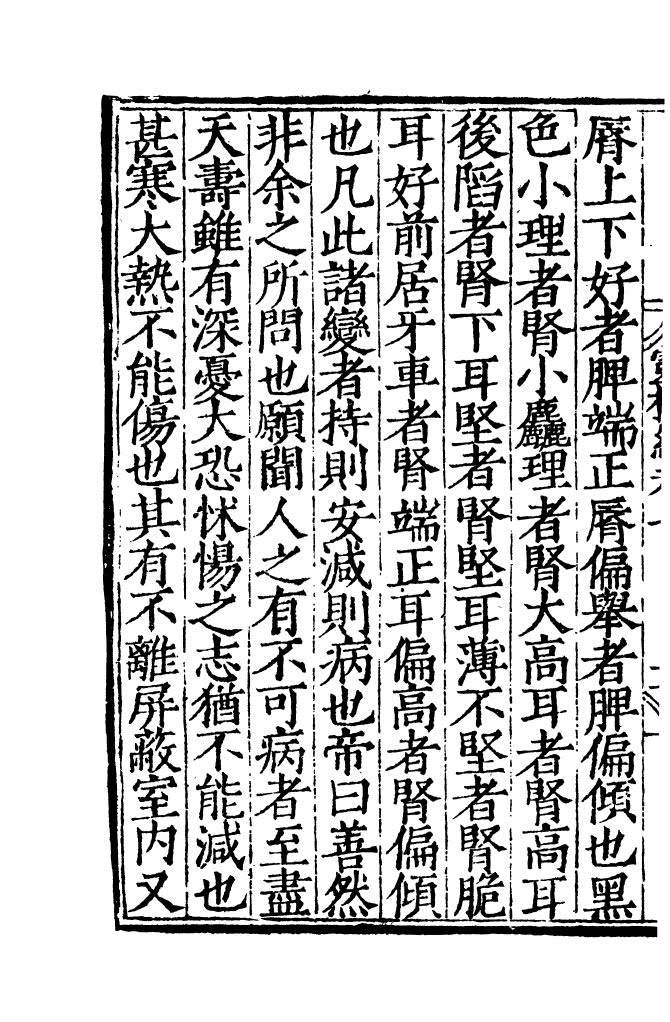 脣上下好者脾端正脣偏舉者脾偏傾也黑
色小理者腎小麤理者腎大高耳者腎高耳
後陷者腎下耳堅者腎堅耳薄不堅者腎脆
耳好前居牙車者腎端正耳偏高者腎偏傾
也凡此諸變者持則安減則病也帝曰善然
非余之所問也願聞人之有不可病者至盡
天壽雖有深憂大恐怵惕之志猶不能減也
甚寒大熱不能傷也其有不離屏蔽室内又